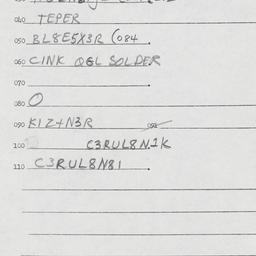 040 TEPER
050 BL8E5X3R (084
060 CINK QGL SOLDER
070
080 O
090 KIZ+N3R
100 C3RUL8N.1K
110 C3RUL8N81